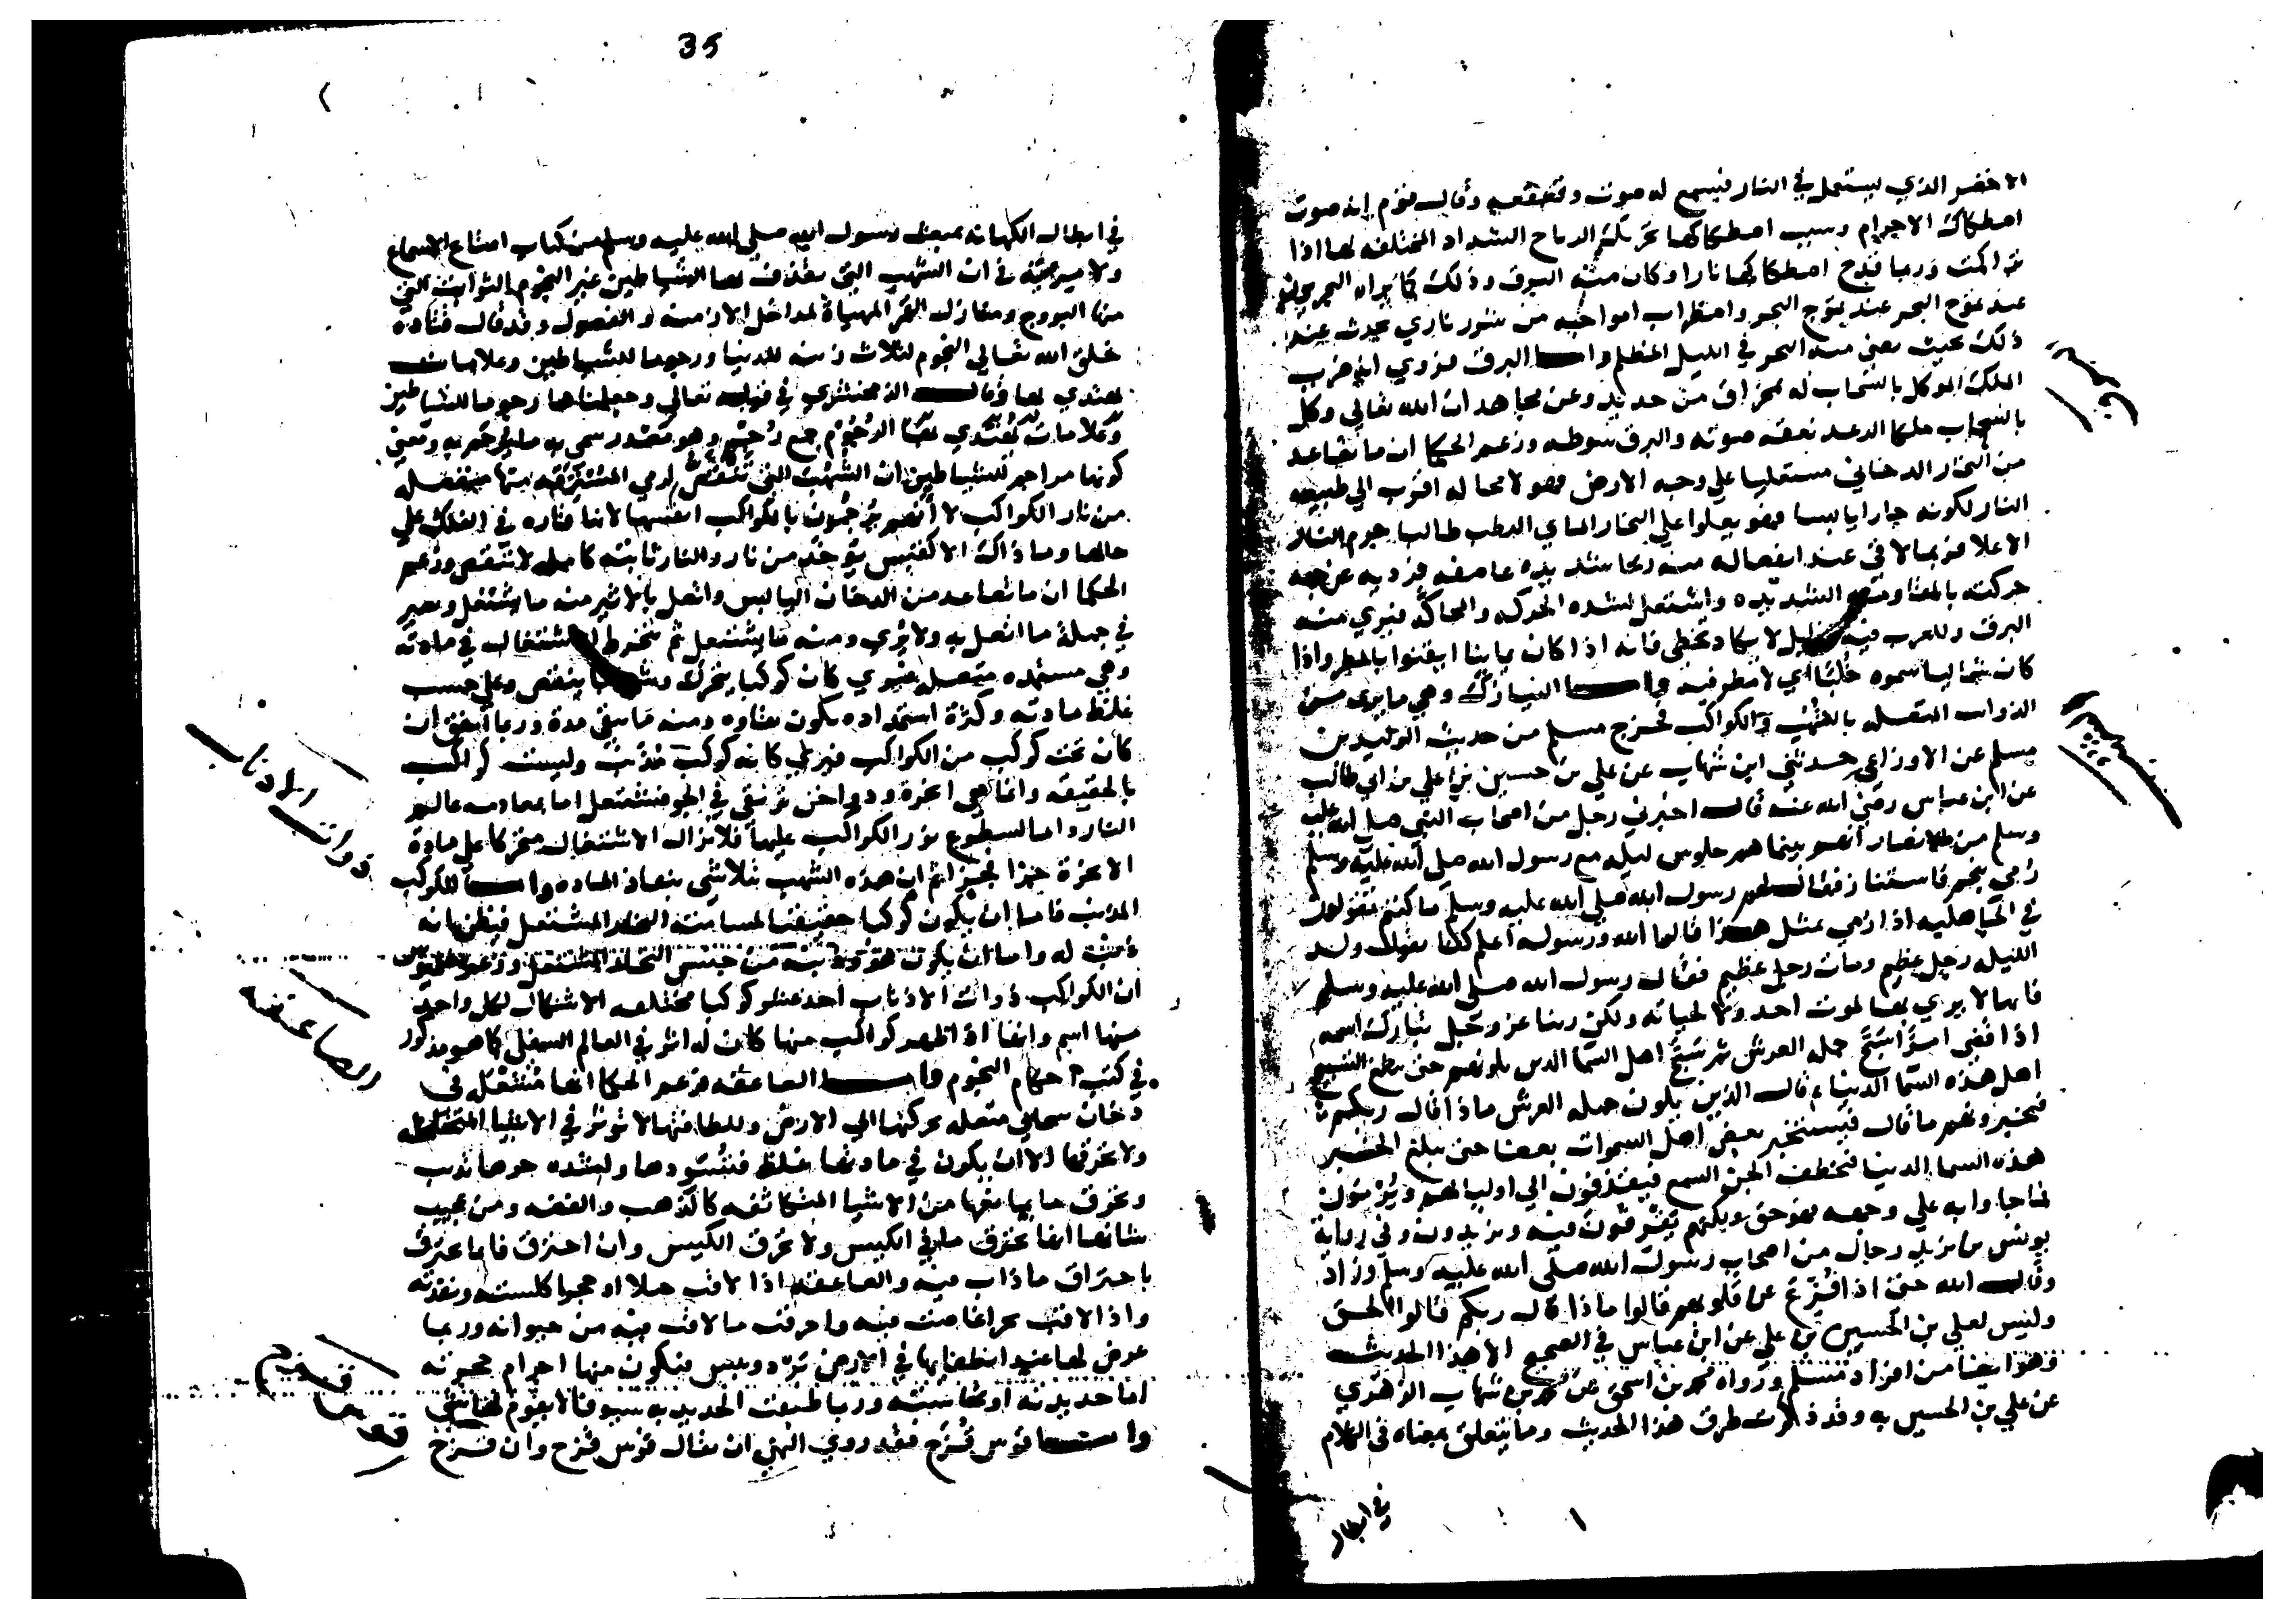 الاخضر الذي يستعمل في النار فيسمع له صوت وقعقعه وقال قوم انه صوت
اصطكاك الاجرام وسبب اصطكاكها تحريك الرياح الشداد المختلفه لها اذا
تراكمت وربما قدح اصطكاكها نارا وكان منه البرق وذلك كما يراه البحريون
عند تموج البحر عند تموج البحر واضطراب امواجه من شرر ناري يحدث عند
ذلك بحيث يضي منه البحر في الليل المظلم واما البرق فروي انه ضرب
الملك الموكل بالسحاب له بمخراق من حديد وعن مجاهد ان الله تعالي وكل
بالسحاب ملكا الرعد نعقه صوته والبرق سوطه وزعم الحكما ان ما تصاعد
من البخار الدخاني مستعليا علي وجه الارض فهو لا محاله اقرب الي طبيعه
النار لكونه حارا يابسا فهو يعلوا علي البخار المائي الرطب طالبا جرم النار
الاعلا فربما لاقي عند انفصاله منه ريحا شديده عاصفه فترديه عن جهه
حركته بالمقاومه الشديده واشتعل لشده الحركه والمحاكه فيري منه
البرق وللعرب فيه لا يكاد يخطي فانه اذا كان يمانيا ايقنوا بالمطر واذا
كان شماليا سموه خلبا اي لا مطر فيه واما النيازك وهي ما يري من
الذوات المتصله بالشهب والكواكب فخرج مسلم من حديث الوليد بن
مسلم عن الاوزاعي حدثني ابن شهاب عن علي بن حسين بن علي بن ابي طالب
عن ابن عباس رضي الله عنه قال اخبرني رجل من اصحاب النبي صلي الله عليه
وسلم من الانصار انهم بينما هم جلوس ليله مع رسول الله صلي الله عليه وسلم
رمي بنجم فاستنار فقال لهم رسول الله صلي الله عليه وسلم ما كنتم تقولون
في الجاهليه اذا رمي بمثل هذا قالوا الله ورسوله اعلم كنا نقول ولد
الليله رجل عظيم ومات رجل عظيم فقال رسول الله صلي الله عليه وسلم
فانها لا يرمي بها لموت احد ولا لحياته ولكن ربنا عز وجل تبارك اسمه
اذا قضي امرا سبح حمله العرش ثم سبح اهل السما الذين يلونهم حتي يبلغ التسبيح
اهل هذه السما الدنيا قال الذين يلون حمله العرش ماذا قال ربكم
فيخبرونهم ما قال فيستخبر بعض اهل السموات بعضا حتي يبلغ الخبر
هذه السما الدنيا فتخطف الجن السمع فيقذفون الي اوليائهم ويرمون
فما جاوا به علي وجهه فهو حق ولكنهم يقرفون فيه ويزيدون وفي رواية
يونس بن يزيد رجال من اصحاب رسول الله صلي الله عليه وسلم وزاد
وقال الله حتي اذا فزع عن قلوبهم قالوا ماذا قال ربكم قالوا الحق
وليس لعلي بن الحسين بن علي عن ابن عباس في الصحيح الا هذا الحديث
وهو ايضا من افراد مسلم ورواه محمد بن اسحق عن محمد بن شهاب الزهري
عن علي بن الحسين به وقد ذكرت طرق هذا الحديث وما يتعلق بمعناه في الكلام
في ابطال
35
في ابطال الكهانه بمبعث رسول الله صلي الله عليه وسلم من كتاب امتاع الاسماع
ولا ميريه في ان الشهب التي تقذف بها الشياطين غير النجوم الثوابت التي
منها البروج ومنازل القمر المهياة لمداخل الازمنه والفصول وقد قال قتاده
خلق الله تعالي النجوم لثلاث زينه للدنيا ورجوما للشياطين وعلامات
يهتدي بها وقال الزمخشري في قوله تعالي وجعلناها رجوما للشياطين
وعلامات يهتدي بها الرجوم جمع رجم وهو مصدر سمي به ما يرجم به ومعني
كونها مراجم للشياطين ان الشهب التي تنقض لرمي المسترقه منها منفصله
من نار الكواكب لا انهم يرجمون بالكواكب انفسها لانها قاره في الفلك علي
حالها وما ذاك الا كقبس يوخذ من نار والنار ثابته كامله لا تنقص وزعم
الحكما ان ما تصاعد من الدخان اليابس واتصل بالاثير منه ما يشتعل ويصير
في جملة ما اتصل به ولا يري ومنه ما يشتعل ثم ينخرط الاشتعال في مادته
وهي مستمده متصله فيري كان كوكبا يتحرك وشهابا ينقض وعلي حسب
غلظ مادته وكثرة استمداده يكون بقاوه ومنه ما يبقي مدة وربما اتفق ان
كان تحت كوكب من الكواكب فيري كانه كوكب مذنب وليست كواكب
بالحقيقه وانما هي ابخرة ودواخن ترتقي في الجو فتشتعل اما بمصادمه عالم
النار واما لسطوع نور الكواكب عليها فلا يزال الاشتعال متحركا علي مادة
الابخرة جزا لجز ثم ان هذه الشهب تتلاشي بنفاذ الماده واما الكوكب
المذنب فاما ان يكون كوكبا حقيقيا لمسامته البخار المشتعل فيظن انه
ذنب له واما ان يكون هو وذنبه من جنس البخار المشتعل وزعم بطلميوس
ان الكواكب ذوات الاذناب احد عشر كوكبا مختلفه الاشكال لكل واحد
منها اسم وانها اذا ظهر كواكب منها كان له اثر في العالم السفلي كما هو مذكور
في كتب احكام النجوم واما الصاعقه فزعم الحكما انها تشتعل في
دخان سحابي متصله حركتها الي الارض وللطافتها لا توثر في الاشيا المتخلخله
ولا تحرقها الا ان يكون في مادتها غلظ فتسودها ولشده حرها تذيب
وتحرق ما يمانعها من الاشيا المتكاثفه كالذهب والفضه ومن عجيب
شانها انها تحرق ما في الكيس ولا تحرق الكيس وان احترق فانما يحترق
باحتراق ما ذاب فيه والصاعقه اذا لاقت جبلا او حجرا كلسته ونفذته
واذا لاقت بحرا غاصت فيه واحرقت ما لاقت فيه من حيوانه وربما
عرض لها عند انطفايها في الارض برد ويبس فتكون منها اجرام حجريه
اما حديديه او نحاسيه وربما طبعت الحديديه سيوفا لا يقوم لها شي
واما قوس قزح فقد روي النهي ان يقال قوس قزح وان قزح
ذوات
الاذناب
الصاعقه
قوس قزح